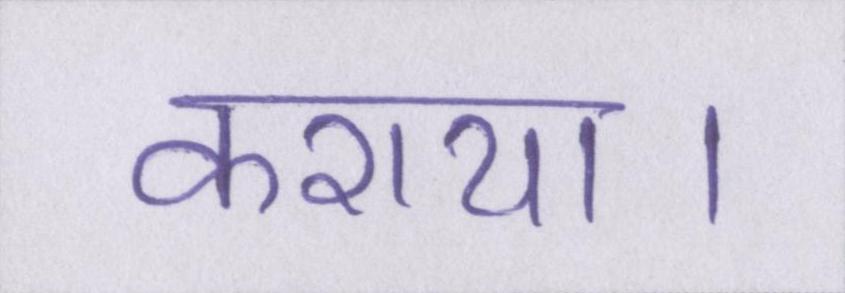 कराया।